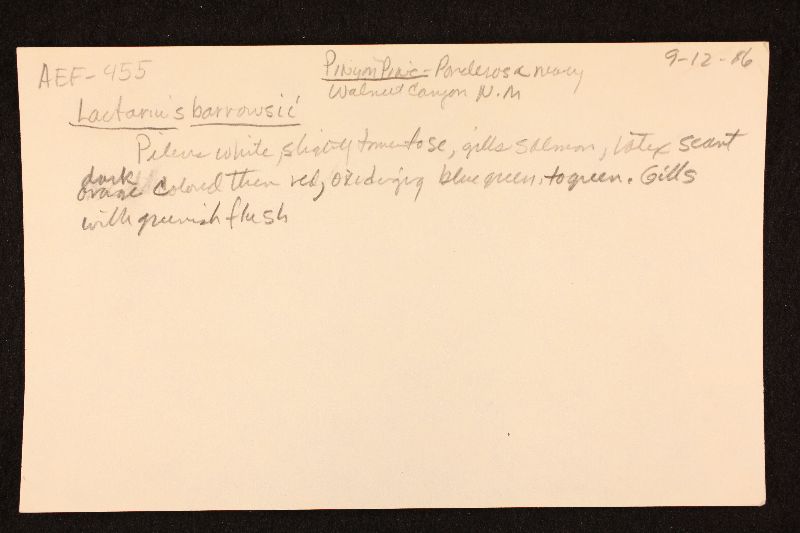 AEF-455
Pinyon Pine - Ponderosa nearby
9-12-86
Walnut Canyon N.M
Lactarius barrowsii
Pileus white, slightly tomentose, gills salmon, latex scant
dark
orange colored then red, oxidizing blue green, to green. Gills
with greenish flush